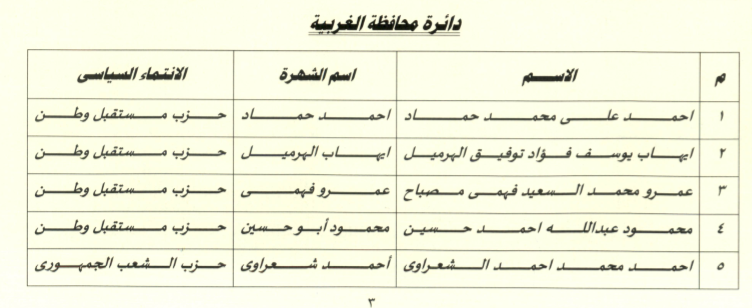 دائرة محافظة الغربية
م الاسم اسم الشهرة الانتماء السياسى
١ احمد على محمد حماد احمد حماد حزب مستقبل وطن
٢ ايهاب يوسف فؤاد توفيق الهرميل ايهاب الهرميل حزب مستقبل وطن
٣ عمرو محمد السعيد فهمى مصباح عمرو فهمى حزب مستقبل وطن
٤ محمود عبدالله احمد حسين محمود أبو حسين حزب مستقبل وطن
٥ احمد محمد احمد الشعراوى أحمد شعراوى حزب الشعب الجمهورى
٣